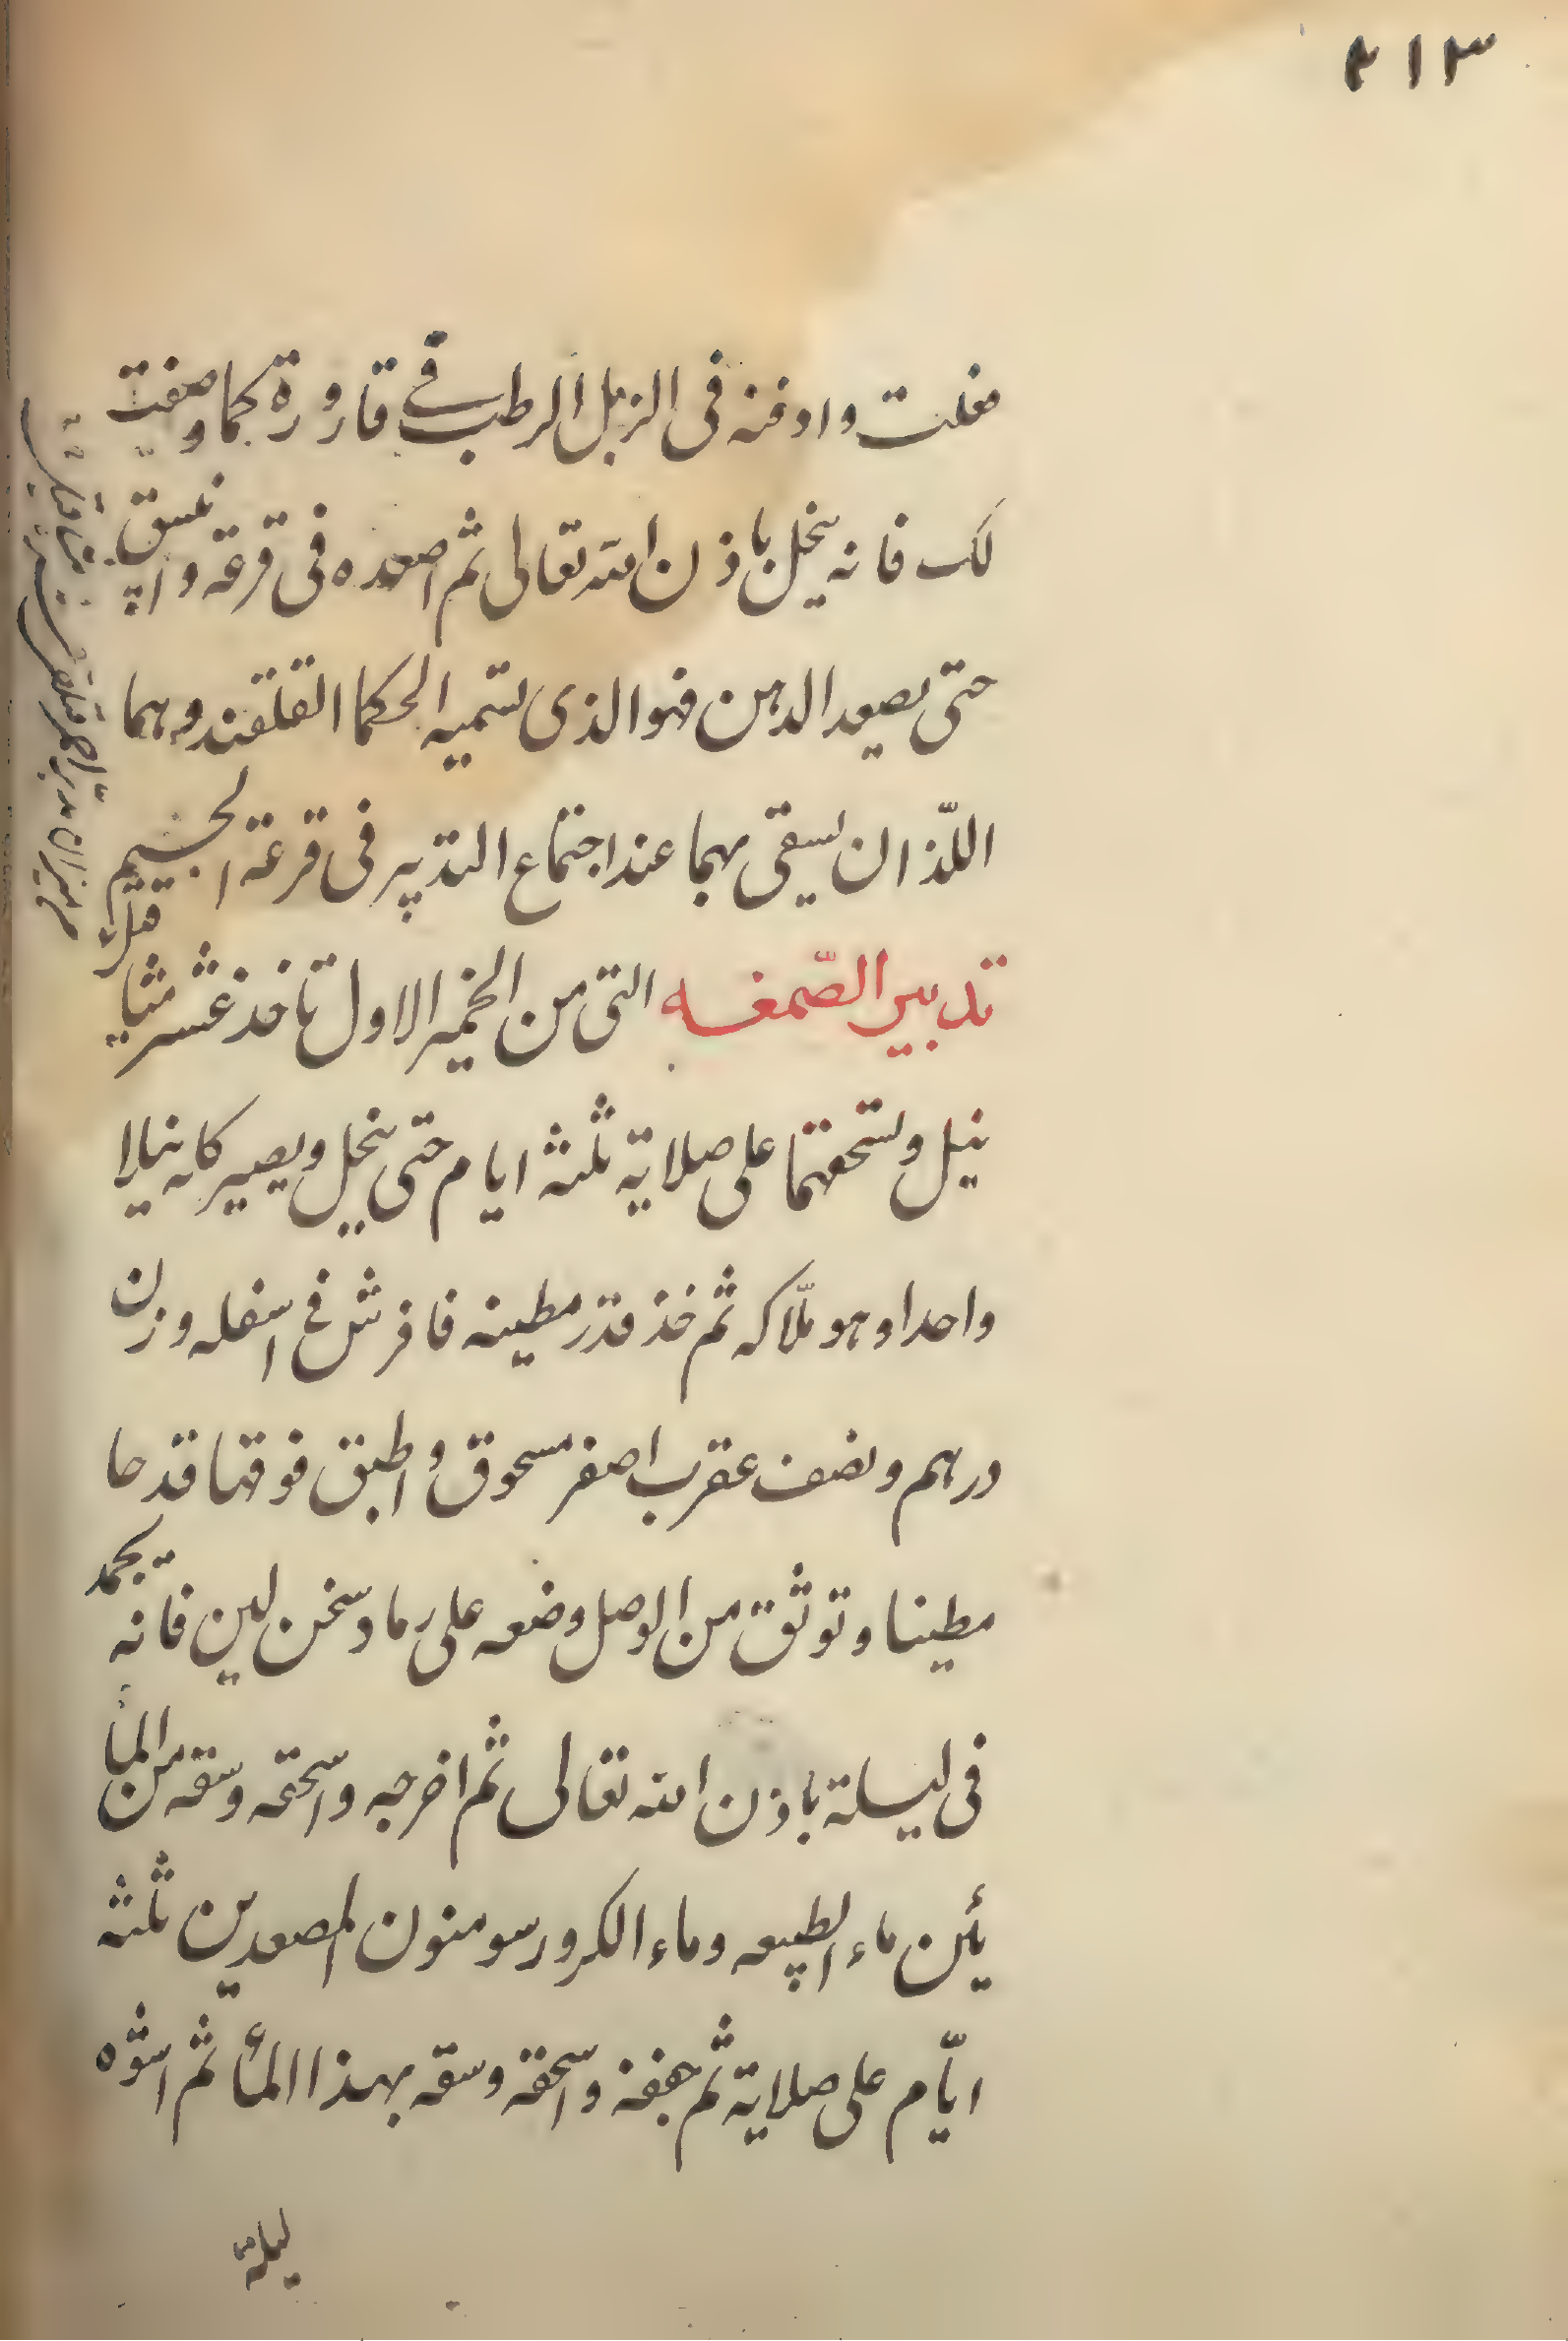 ٣١٣
فعلت وادفنه فى الزبل الرطب فى قارورة كما وصفت
لك فانه ينحل باذن الله تعالى ثم اصعده فى قرعة وانبيق
حتى يصعد الدهن فهو الذى تسميه الحكما القلقند وهما
اللّذان يسقى بهما عند اجتماع التدبير فى قرعة الجسيم
تدبير الصّمغه التى من الخمير الاول تاخذ عشر مثاقيل
نيل وتسحقها على صلاية ثلثة ايام حتى ينحل ويصير كانه نيلا
واحدا وهو ملّاكه ثم خذ قدر مطينه فافرش فى اسفله وزن
درهم ونصف عقرب اصفر مسحوق واطبق فوقها قدحا
مطينا وتوثق من الوصل وضعه على رماد سخن لين فانه يجمد
فى ليلة باذن الله تعالى ثم اخرجه واسحقه وسقه من الما
ئين ماء الطبيعه وماء الكرورسومنون المصعدين ثلثه
ايّام على صلاية ثم جففه واسحقه وسقه بهذا المأ ثم اشوّه
ليلة